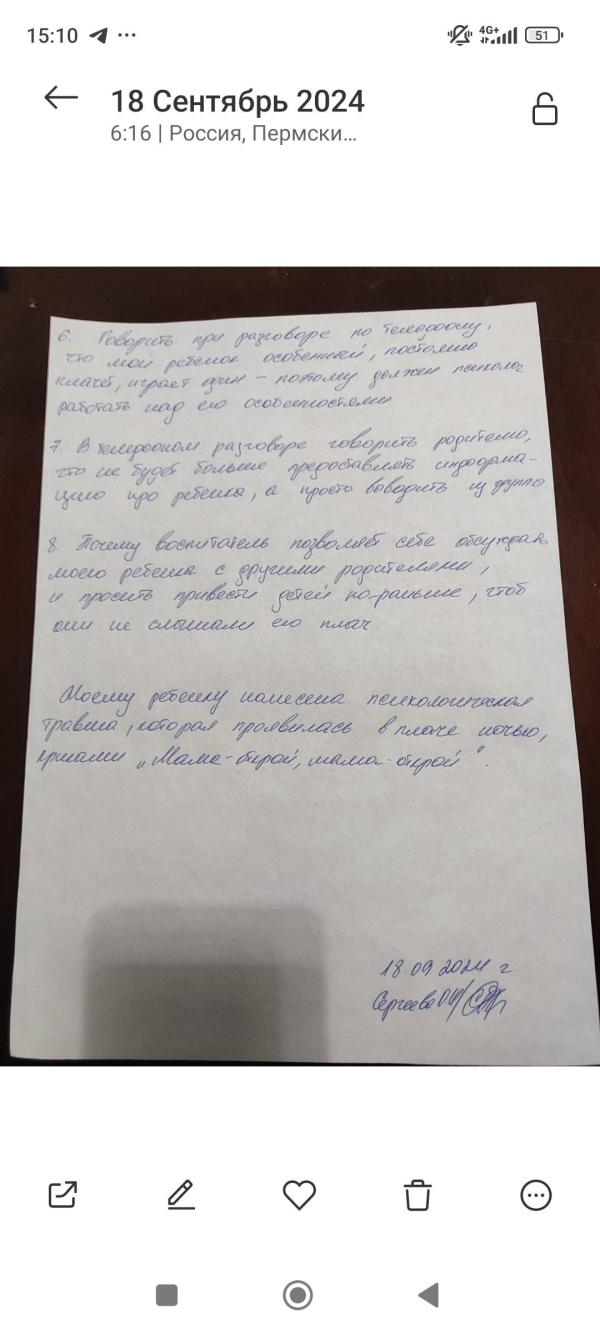 15:10 ...
4G+ 51
18 Сентябрь 2024
6:16 | Россия, Пермски...
6. Говорить при разговоре по телефону,
что мой ребенок особенный, постоянно
плачет, играет один – поэтому должен психолог
работать над его особенностями
7. В телефоном разговоре говорить родителю,
что не будет больше предоставлять информа-
цию про ребенка, а просто выводить из группы.
8. Почему воспитатель позволяет себе обсуждать
моего ребенка с другими родителями,
и просить привести детей по-раньше, чтоб
они не слышали его плач.
Моему ребенку нанесена психологическая
травма, которая проявилась в плаче ночью,
криками „Мама-открой, мама-открой".
18.09.2024 г
Сергеева